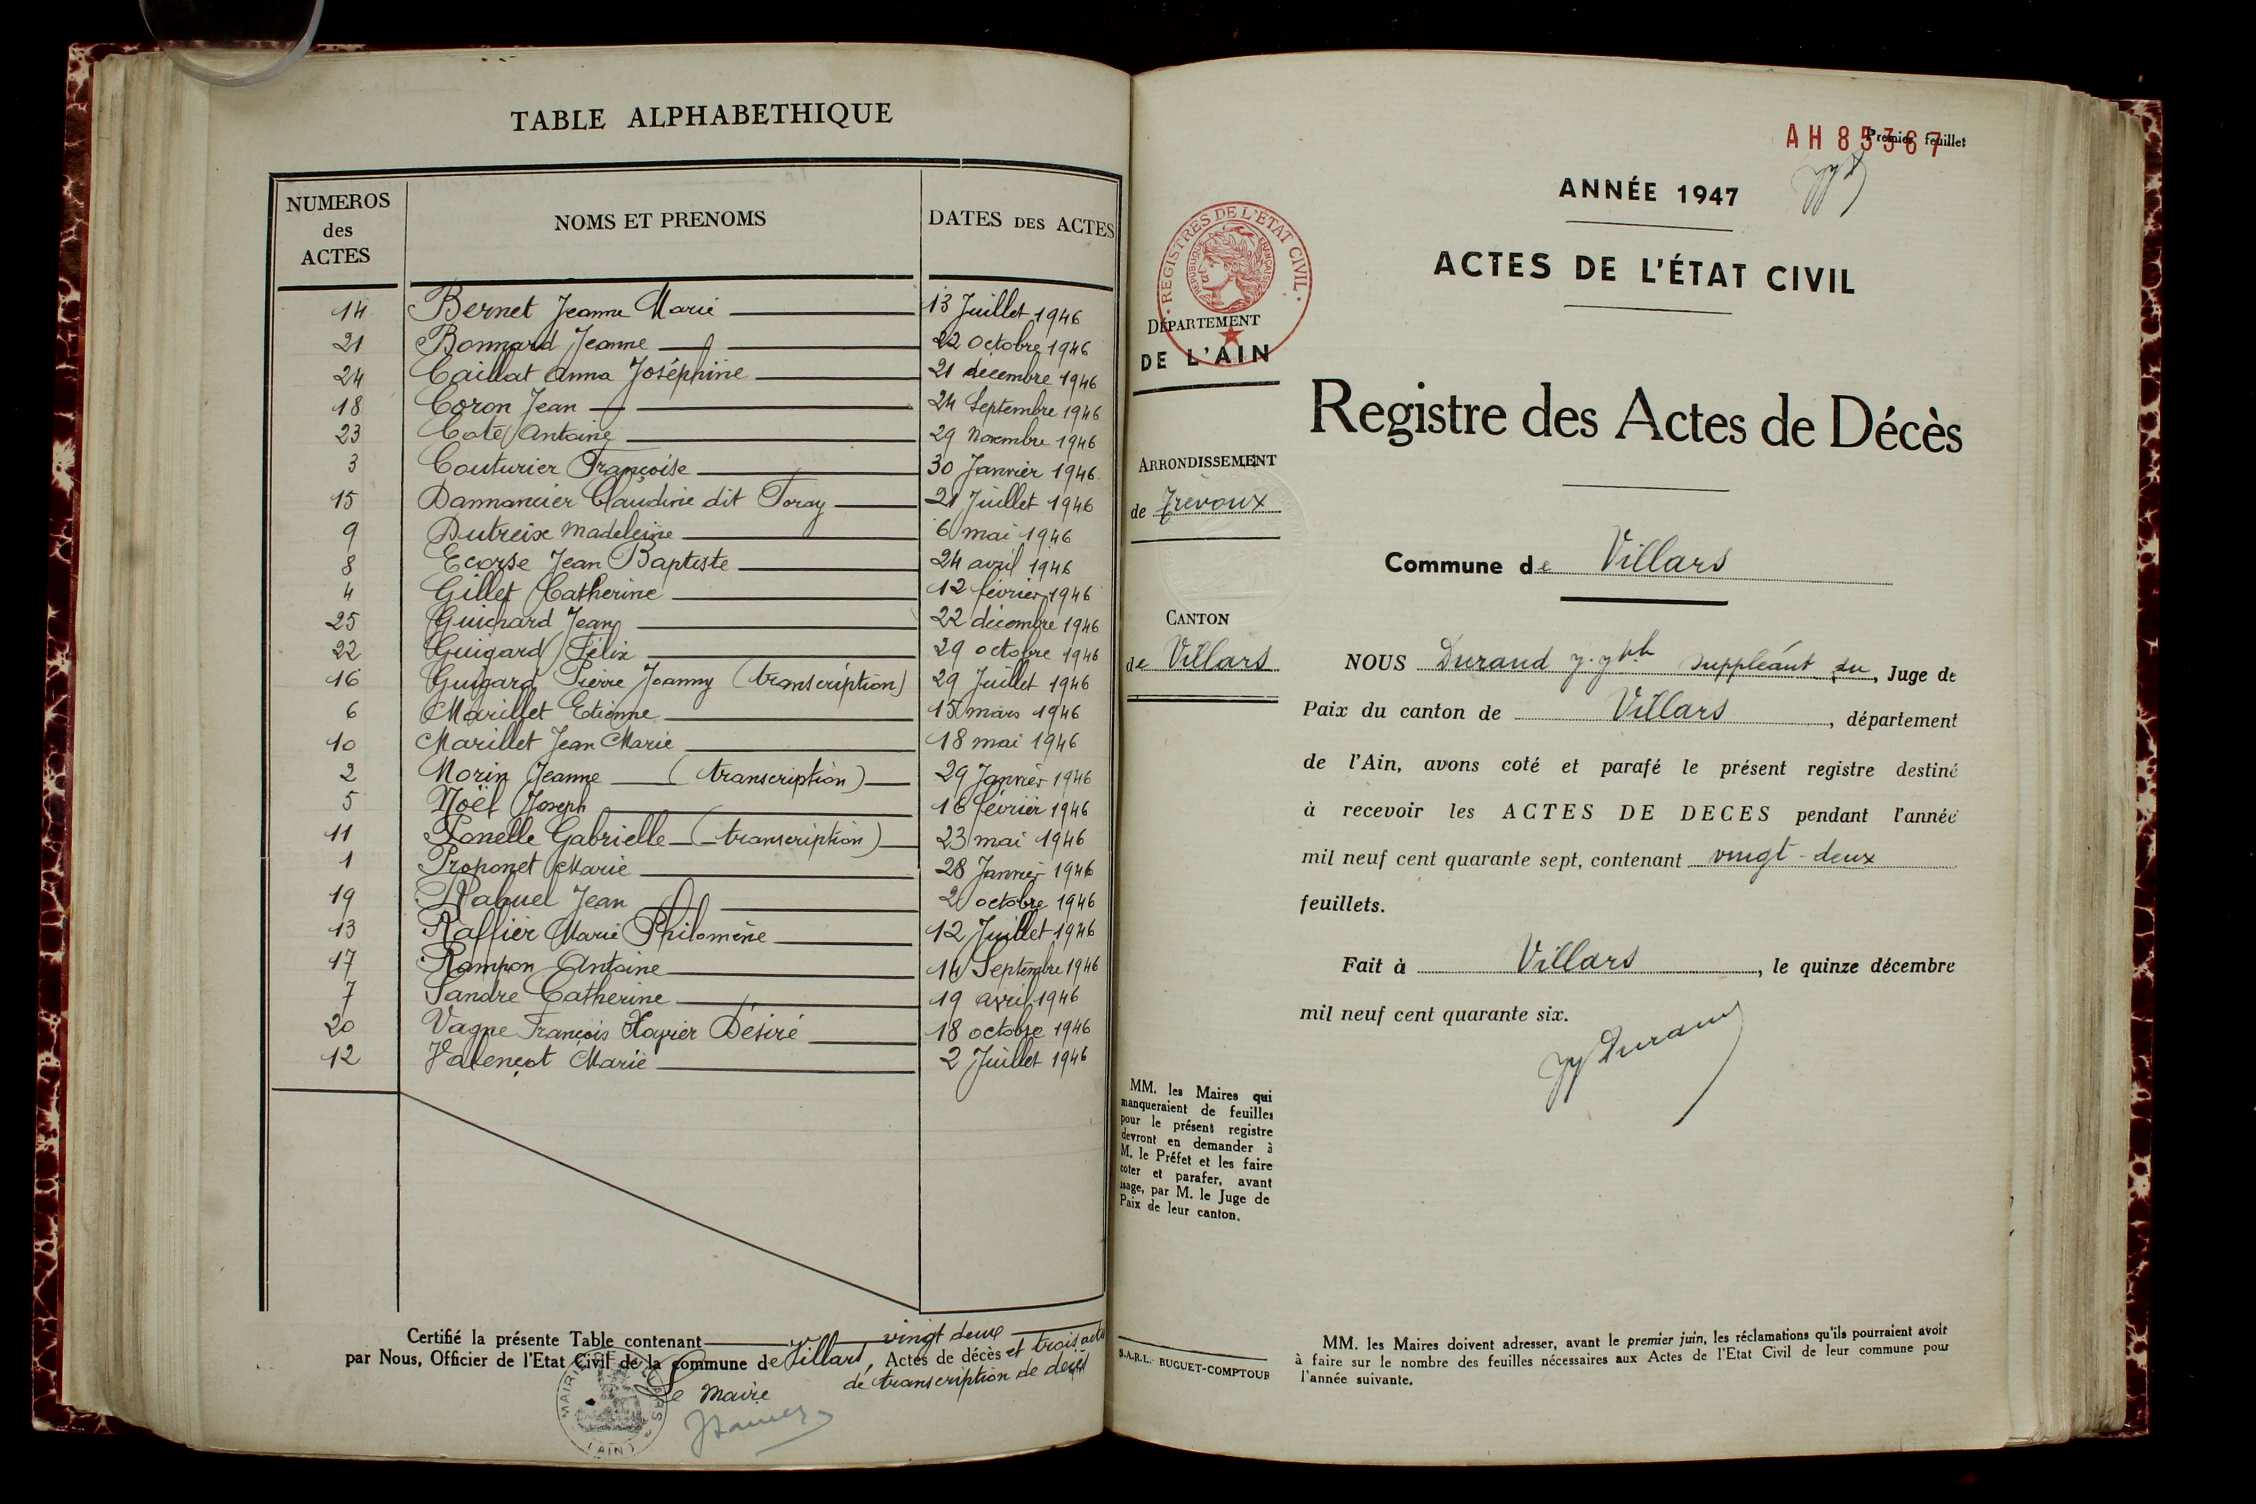 TABLE ALPHABETHIQUE
NUMEROS des ACTES NOMS ET PRENOMS DATES DES ACTES
14 Bernet Jeanne Marie 13 Juillet 1946
21 Bonnard Jeanne 22 octobre 1946
24 Caillat Anna Joséphine 21 décembre 1946
18 Coron Jean 24 Septembre 1946
23 Coté Antoine 29 Novembre 1946
3 Couturier Françoise 30 Janvier 1946
15 Dannancier Claudine dit Foray 21 Juillet 1946
9 Dutreix Madeleine 6 mai 1946
8 Ecorse Jean Baptiste 24 avril 1946
4 Gillet Catherine 12 février 1946
25 Guichard Jean 22 décembre 1946
22 Guigard Félix 29 octobre 1946
16 Guigard Pierre Joanny (transcription) 29 Juillet 1946
6 Marillet Etienne 15 mars 1946
10 Marillet Jean Marie 18 mai 1946
2 Morin Jeanne (transcription) 29 Janvier 1946
5 Noël Joseph 16 février 1946
11 Ponelle Gabrielle (transcription) 23 mai 1946
1 Proponet Marie 28 Janvier 1946
19 Rabuel Jean 2 octobre 1946
13 Raffier Marie Philomène 12 Juillet 1946
17 Rampon Antoine 14 Septembre 1946
7 Sandre Catherine 19 avril 1946
20 Vagne François Xavier Désiré 18 octobre 1946
12 Valençot Marie 2 Juillet 1946
Certifié la présente Table contenant vingt deux
par Nous, Officier de l'Etat Civil de la commune de Villars, Actes de décès et trois actes
de transcription de décès
Le Maire
MAIRIE DE VILLARS
(AIN)
AH 85367
Premier feuillet
ANNÉE 1947
ACTES DE L'ÉTAT CIVIL
REGISTRES DE L'ETAT CIVIL
REPUBLIQUE FRANÇAISE
DÉPARTEMENT
DE L'AIN
Registre des Actes de Décès
ARRONDISSEMENT
de Trévoux
Commune de Villars
CANTON
de Villars
NOUS Durand suppléant du, Juge de
Paix du canton de Villars, département
de l'Ain, avons coté et parafé le présent registre destiné
à recevoir les ACTES DE DECES pendant l'année
mil neuf cent quarante sept, contenant vingt-deux
feuillets.
Fait à Villars, le quinze décembre
mil neuf cent quarante six.
JY Durand
MM. les Maires qui
manqueraient de feuilles
pour le présent registre
devront en demander à
M. le Préfet et les faire
coter et parafer, avant
usage, par M. le Juge de
Paix de leur canton.
S.A.R.L. RUGUET-COMPTOUR
MM. les Maires doivent adresser, avant le premier juin, les réclamations qu'ils pourraient avoir
à faire sur le nombre des feuilles nécessaires aux Actes de l'Etat Civil de leur commune pour
l'année suivante.